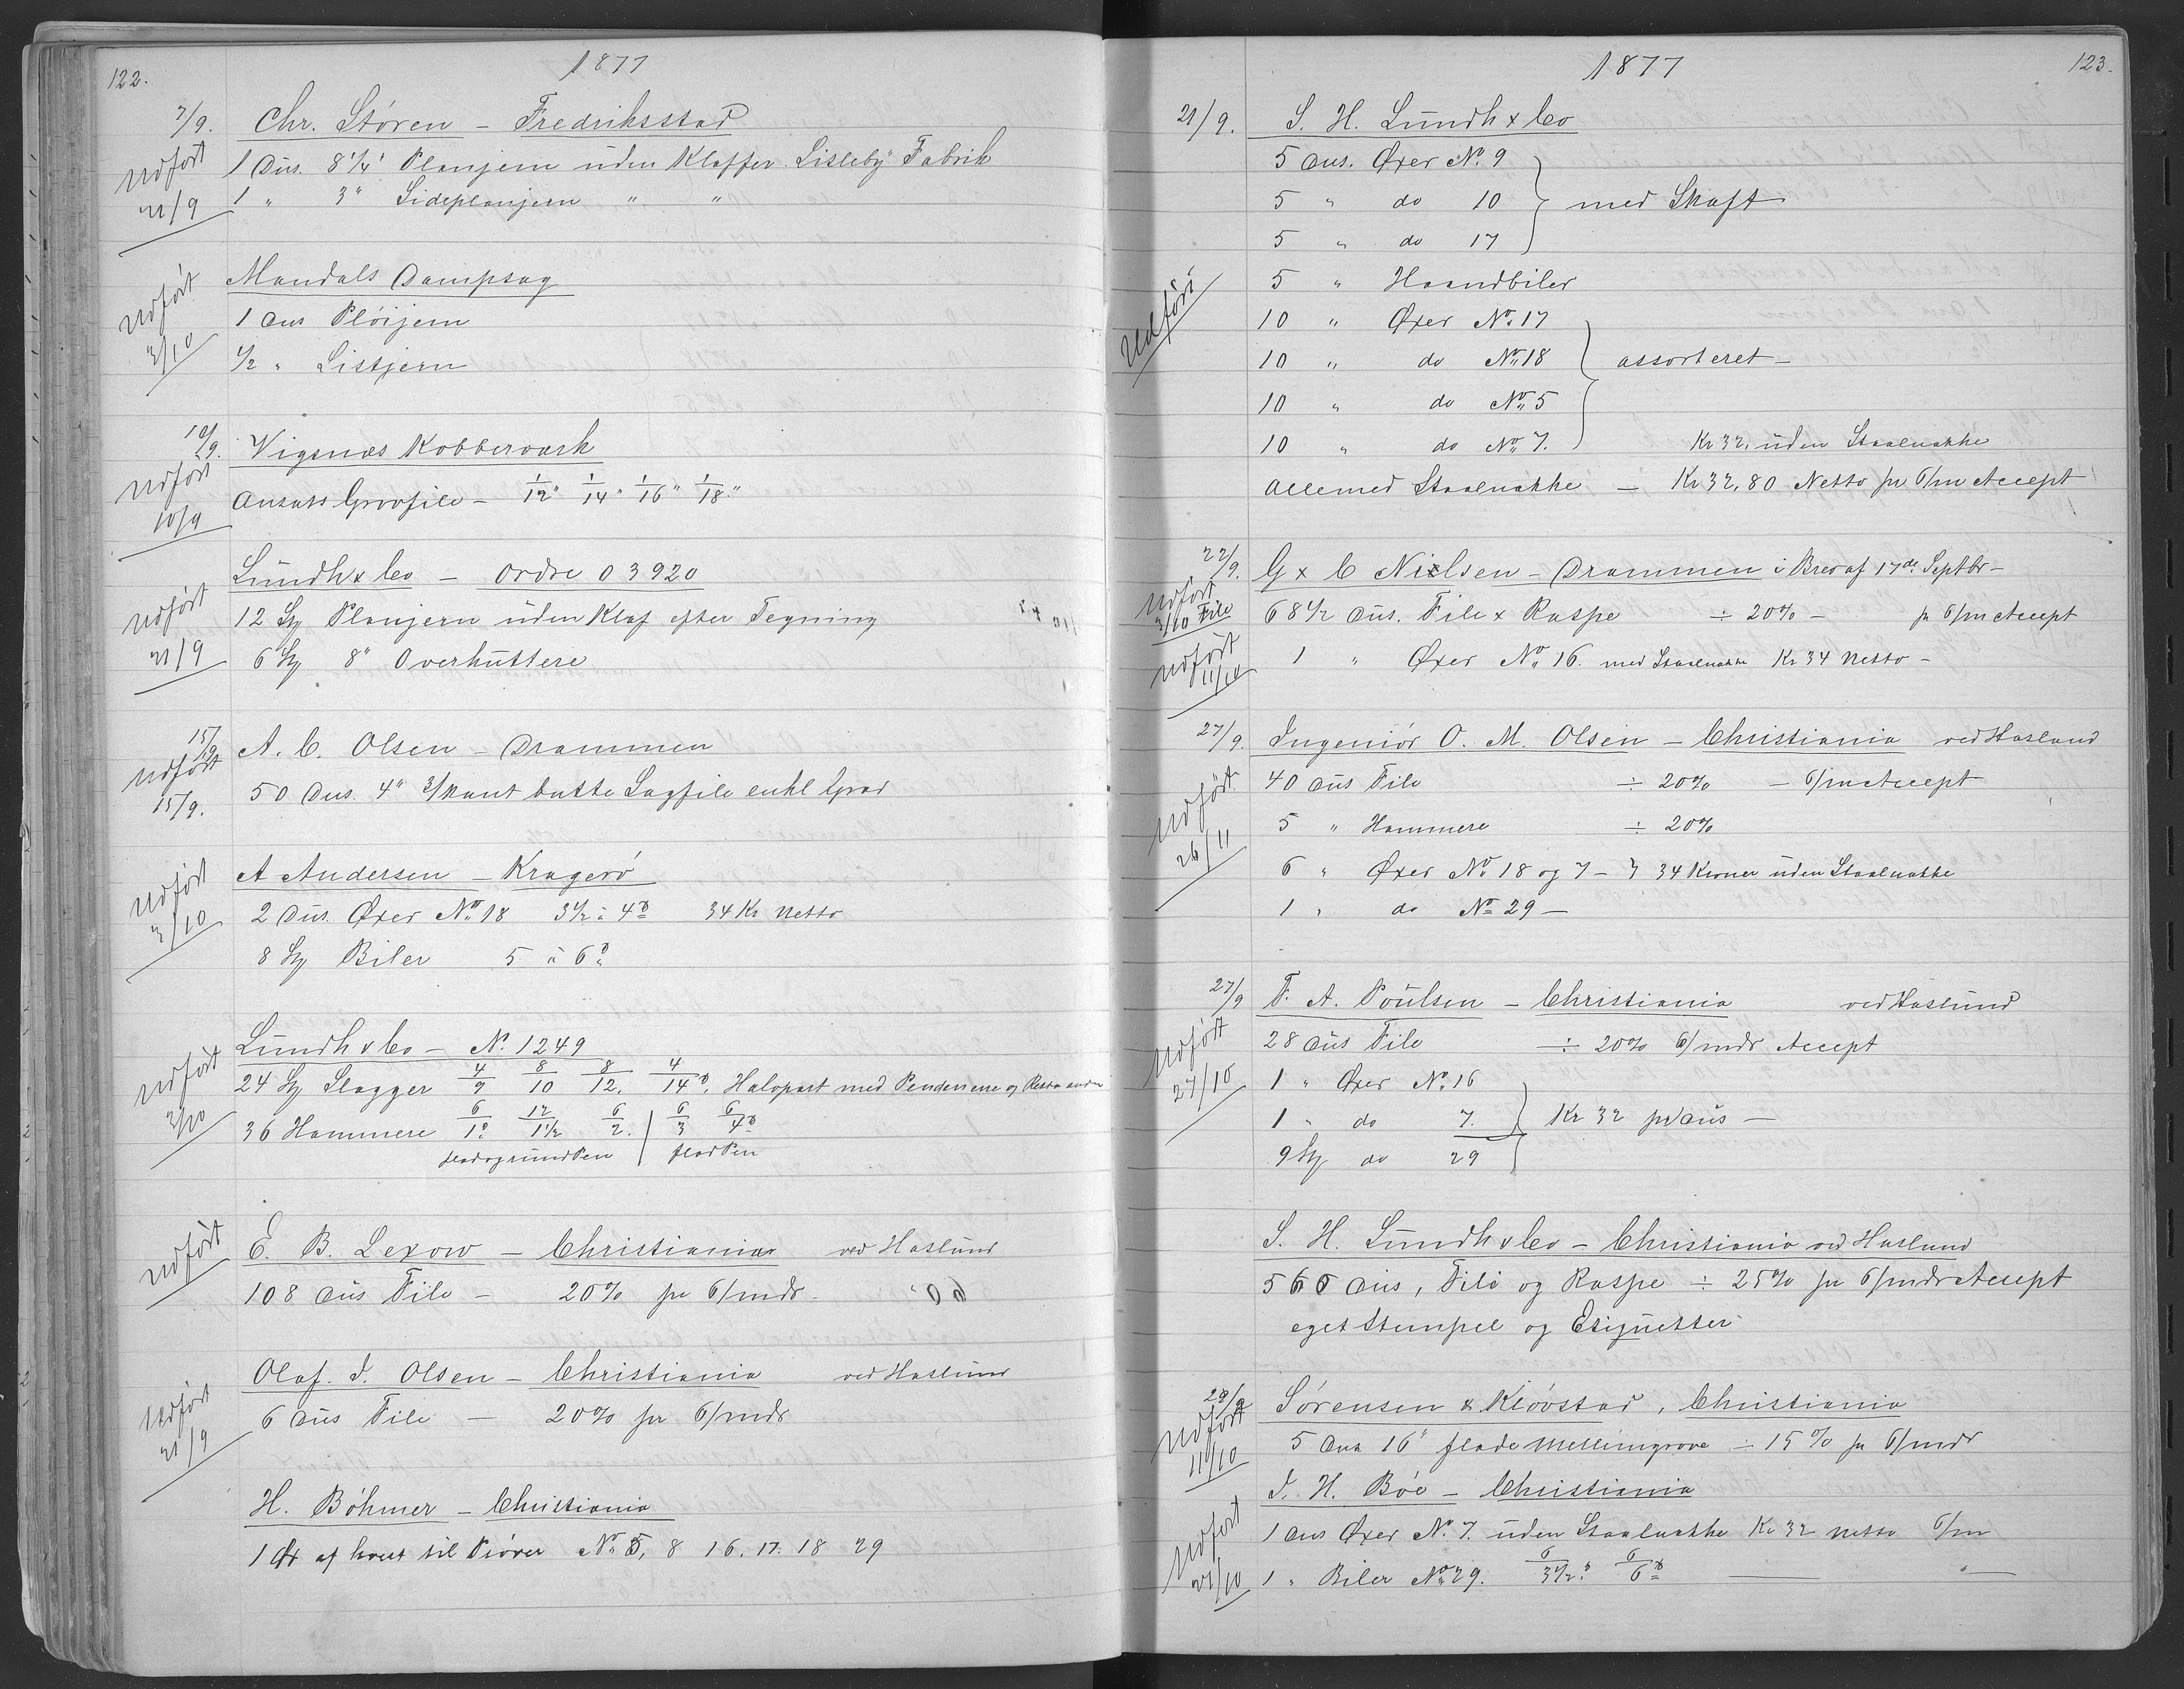 122.
1877
7/9. Chr. Støren - Fredriksstad
Udført 1 Dus. 8 1/4" Planjern uden Klaffer Lisleby Fabrik
21/9 1 " 3" Sideplanjern " "
Udført Mandals Dampsag
3/10 1 Dus Pløijern
1/2 " Listjern
10/9. Vigsnæs Kobberværk
Udført 10/9 Ansats Grovfile - 1/12" 1/14" 1/16" 1/18"
Lundh & Co - Ordre 03920
Udført 12 St Planjern uden Klaf efter Tegning
21/9 6 St 8" Overhuttere
15/9 A. C. Olsen - Drammen
Udført 15/9. 50 Dus. 4" 3/kant butte Sagfile enkl Grad
Udført A Andersen - Kragerö
3/10 2 Dus. Øxer No 18 3 1/2 à 4 lb 34 Kr Netto
8 St Biler 5 à 6 lb
Udført Lundh & Co - No. 1249
3/10 24 St Slagger 4/9 8/10 8/12. 4/14 lb. Halvpart med Penden ene og Resten
36 Hammere 6/1 12/1 1/2 6/2. | 6/3 6/4 lb
flad og rund Pen | flad Pen
Udført E. B. Lexow - Christiania ved Haslund
108 Dus File - 20% pr 6/mdr.
Olaf. J. Olsen - Christiania ved Haslund
Udført 21/9 6 Dus File - 20% pr 6/mdr
H. Böhmer - Christiania
1 Øx af hvert til Prøver No 5, 8 16. 17. 18 29
1877
123.
21/9. S. H. Lundh & Co
5 Dus. Øxer No. 9
5 " do 10 } med Skaft
5 " do 17
Udført 5 " Haandbiler
10 " Øxer No. 17
10 " do No. 18 } assorteret -
10 " do No. 5
10 " do No. 7. Kr 32, uden Staalnakke
Alle med Staalnakke - Kr 32,80 Netto pr 6/m Accept
22/9. G & C Nielsen - Drammen i Brev af 17de Septbr -
Udført 3/10 File 68 1/2 Dus. File & Raspe ÷ 20% - pr 6/m Accept
Udført 11/10 1 " Øxer No. 16. med Staalnakke Kr 34 Netto -
27/9. Ingeniör O. M. Olsen - Christiania ved Haslund
40 Dus File ÷ 20% - 6/m Accept
Udført 5 " Hammere ÷ 20%
26/11 6 " Øxer No. 18 og 7 - } 34 Kroner uden Staalnakke
1 " do No 29 -
27/9 F. A. Poulsen - Christiania ved Haslund
Udført 28 Dus File ÷ 20% 6/mdr Accept
27/10 1 " Øxer No. 16
1 " do 7. } Kr 32 pr Dus -
9 St do 29
S. H. Lundh & Co - Christiania ved Haslund
560 Dus, File og Raspe ÷ 25% pr 6/mdr Accept
eget Stempel og Etiquetter
29/9 Sørensen & Klövstad, Christiania
Udført 11/10 5 Dus 16" flade Mellemgrove ÷ 15% pr 6/mdr
J. H. Böe - Christiania
Udført 1 Dus Øxer No. 7. uden Staalnakke Kr 32 netto 6/m
1 " Biler No. 29. 6/3 1/2 6/6 lb "